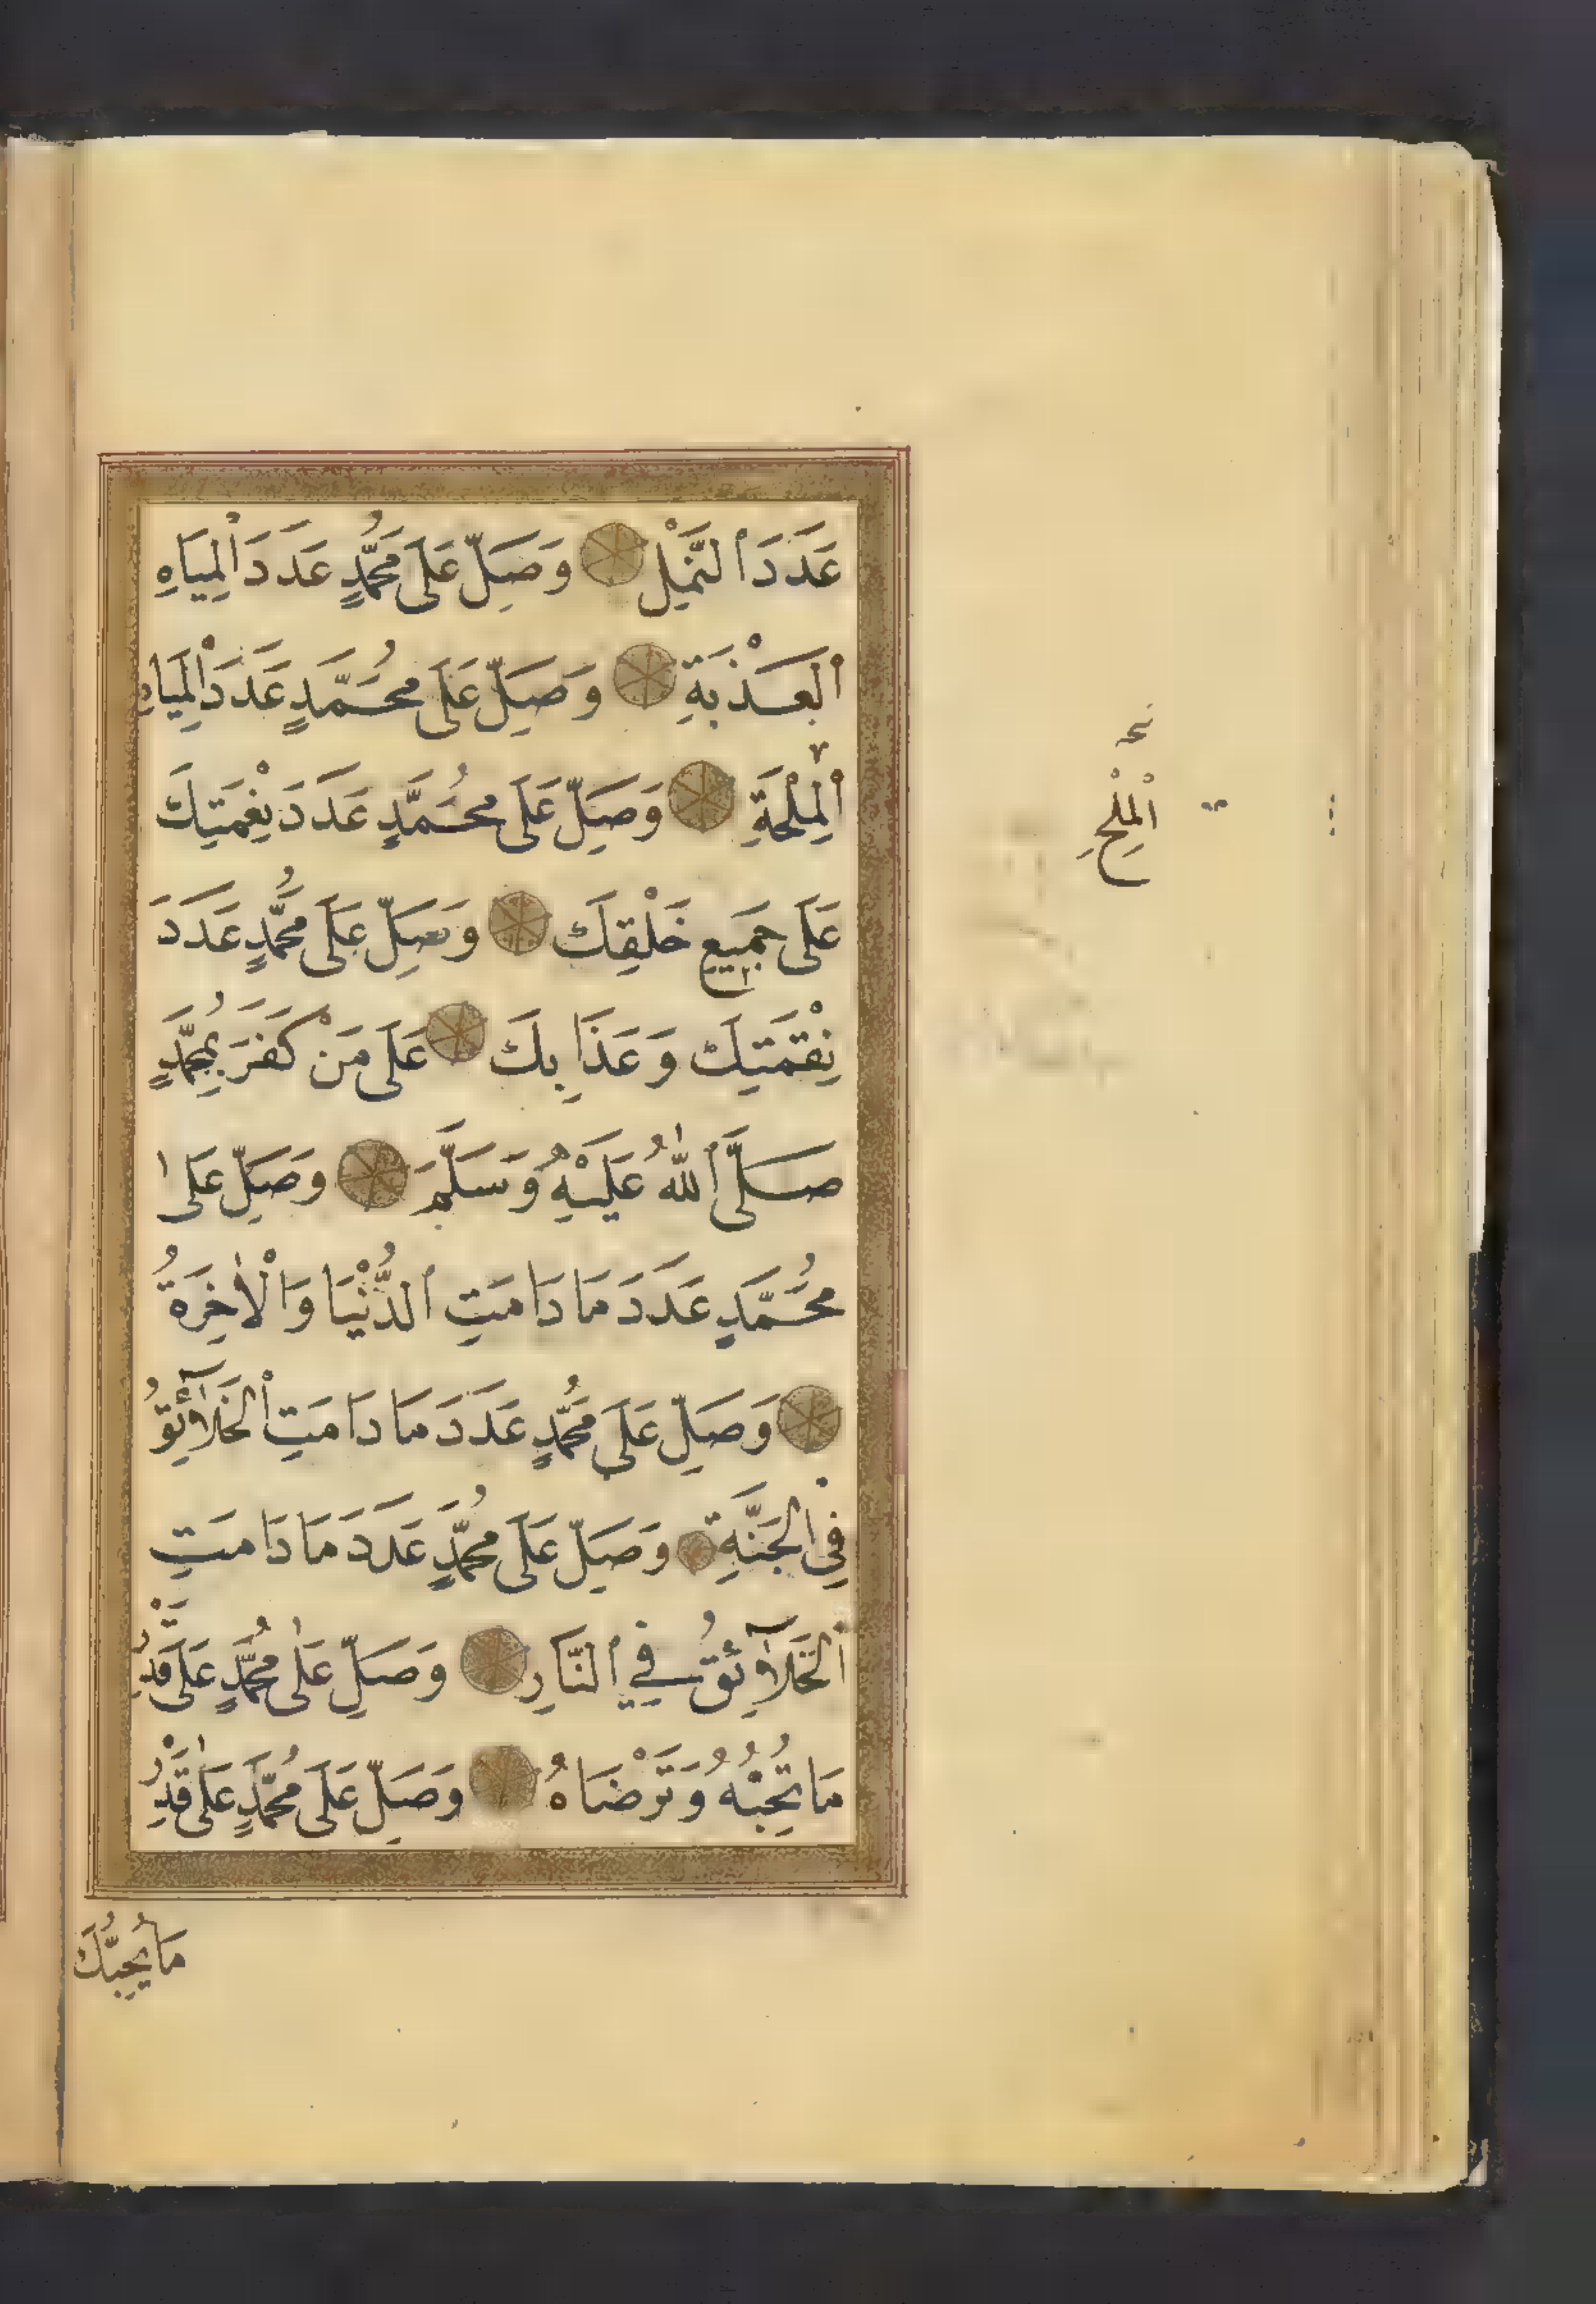 عَدَدَ ٱلنَّمْلِ وَصَلِّ عَلَى مُحَمَّدٍ عَدَدَ الْمِيَاهِ
ٱلْعَذْبَةِ وَصَلِّ عَلَى مُحَمَّدٍ عَدَدَ الْمِيَاهِ
ٱلْمِلْحَةِ وَصَلِّ عَلَى مُحَمَّدٍ عَدَدَ نِعْمَتِكَ
عَلَى جَمِيعِ خَلْقِكَ وَصَلِّ عَلَى مُحَمَّدٍ عَدَدَ
نِقْمَتِكَ وَعَذَابِكَ عَلَى مَنْ كَفَرَ بِمُحَمَّدٍ
صَلَّى ٱللّٰهُ عَلَيْهِ وَسَلَّمَ وَصَلِّ عَلَى
مُحَمَّدٍ عَدَدَ مَا دَامَتِ ٱلدُّنْيَا وَالْاٰخِرَةُ
وَصَلِّ عَلَى مُحَمَّدٍ عَدَدَ مَا دَامَتِ الْخَلَآئِقُ
فِي الْجَنَّةِ وَصَلِّ عَلَى مُحَمَّدٍ عَدَدَ مَا دَامَتِ
ٱلْخَلَآئِقُ فِي ٱلنَّارِ وَصَلِّ عَلٰى مُحَمَّدٍ عَلَى قَدْرِ
مَا تُحِبُّهُ وَتَرْضَاهُ وَصَلِّ عَلَى مُحَمَّدٍ عَلٰى قَدْرِ
مَا يُحِبُّكَ
ٱلْمِلْحِ